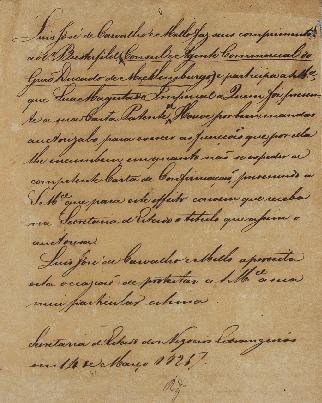 Luis José de Carvalho e Mello faz seus comprimentos
ao Sr. Biesterfeld, Consul e Agente Commercial do
Grão Ducado de Mecklemburgo, e participa a S. Mce.
que Sua Magestade Imperial a Quem foi presen-
te a sua Carta Patente, Houve por bem mandar
autorizalo, para exercer as funcções que por ella
lhe incumbem em quanto não se expedir a
competente Carta de Confirmação, prevenindo a
S. Mce. que para este effeito convem que receba
na Secretaria de Estado o titulo que assim o
autoriza.
Luis José de Carvalho e Mello aproveita
esta occasião de protestar a S. Mce. a sua
mui particular estima.
Secretaria de Estado dos Negocios Estrangeiros
em 14 de Março 1825